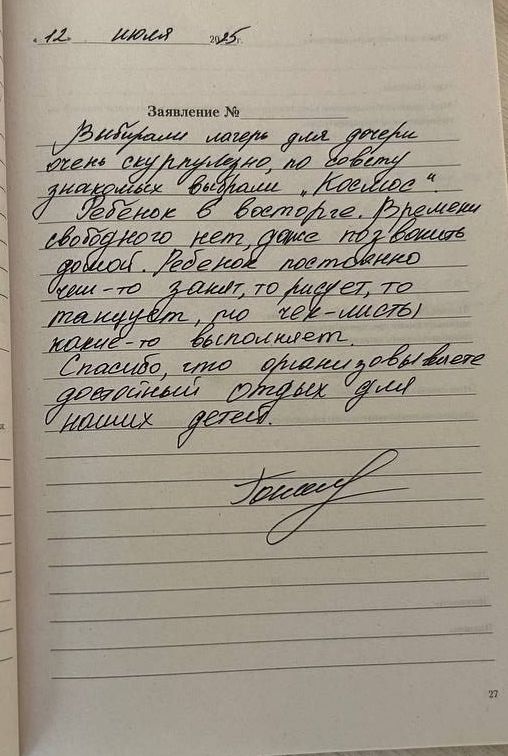 « 12 » июля 2025 г.
Заявление №
Выбирали лагерь для дочери
очень скурпулезно, по совету
знакомых выбрали „Космос".
Ребёнок в восторге. Времени
свободного нет, даже позвонить
домой. Ребенок постоянно
чем-то занят, то рисует, то
танцует, то чек-листы
какие-то выполняет.
Спасибо, что организовываете
достойный отдых для
наших детей.
27